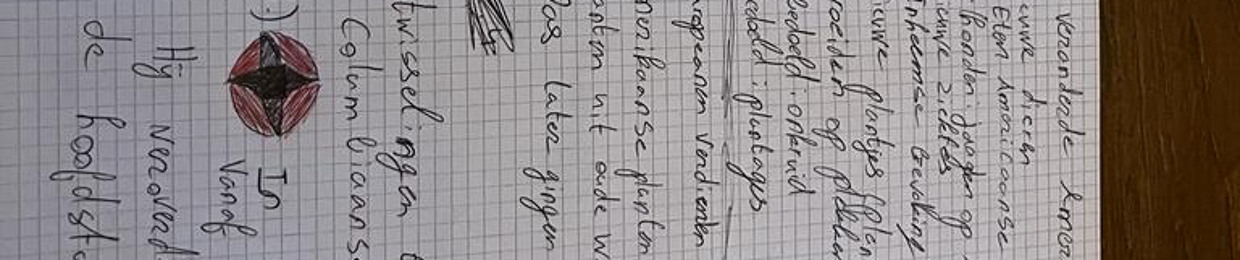 veranderde Amer
euwe dieren
Eten Americaanse
honden jaagden op
ieuwe ziektes
Inheemse bevolking
ieuwe plantjes (plan
roeiden op plekken
bedoeld: onkruid
edoeld: plantages
ropeanen verdienden
merikaanse planten
anten uit oude w
Pas later gingen
twisselingen t
Columbiaans
:) In
Vanaf
Hij veroverd
de hoofdst